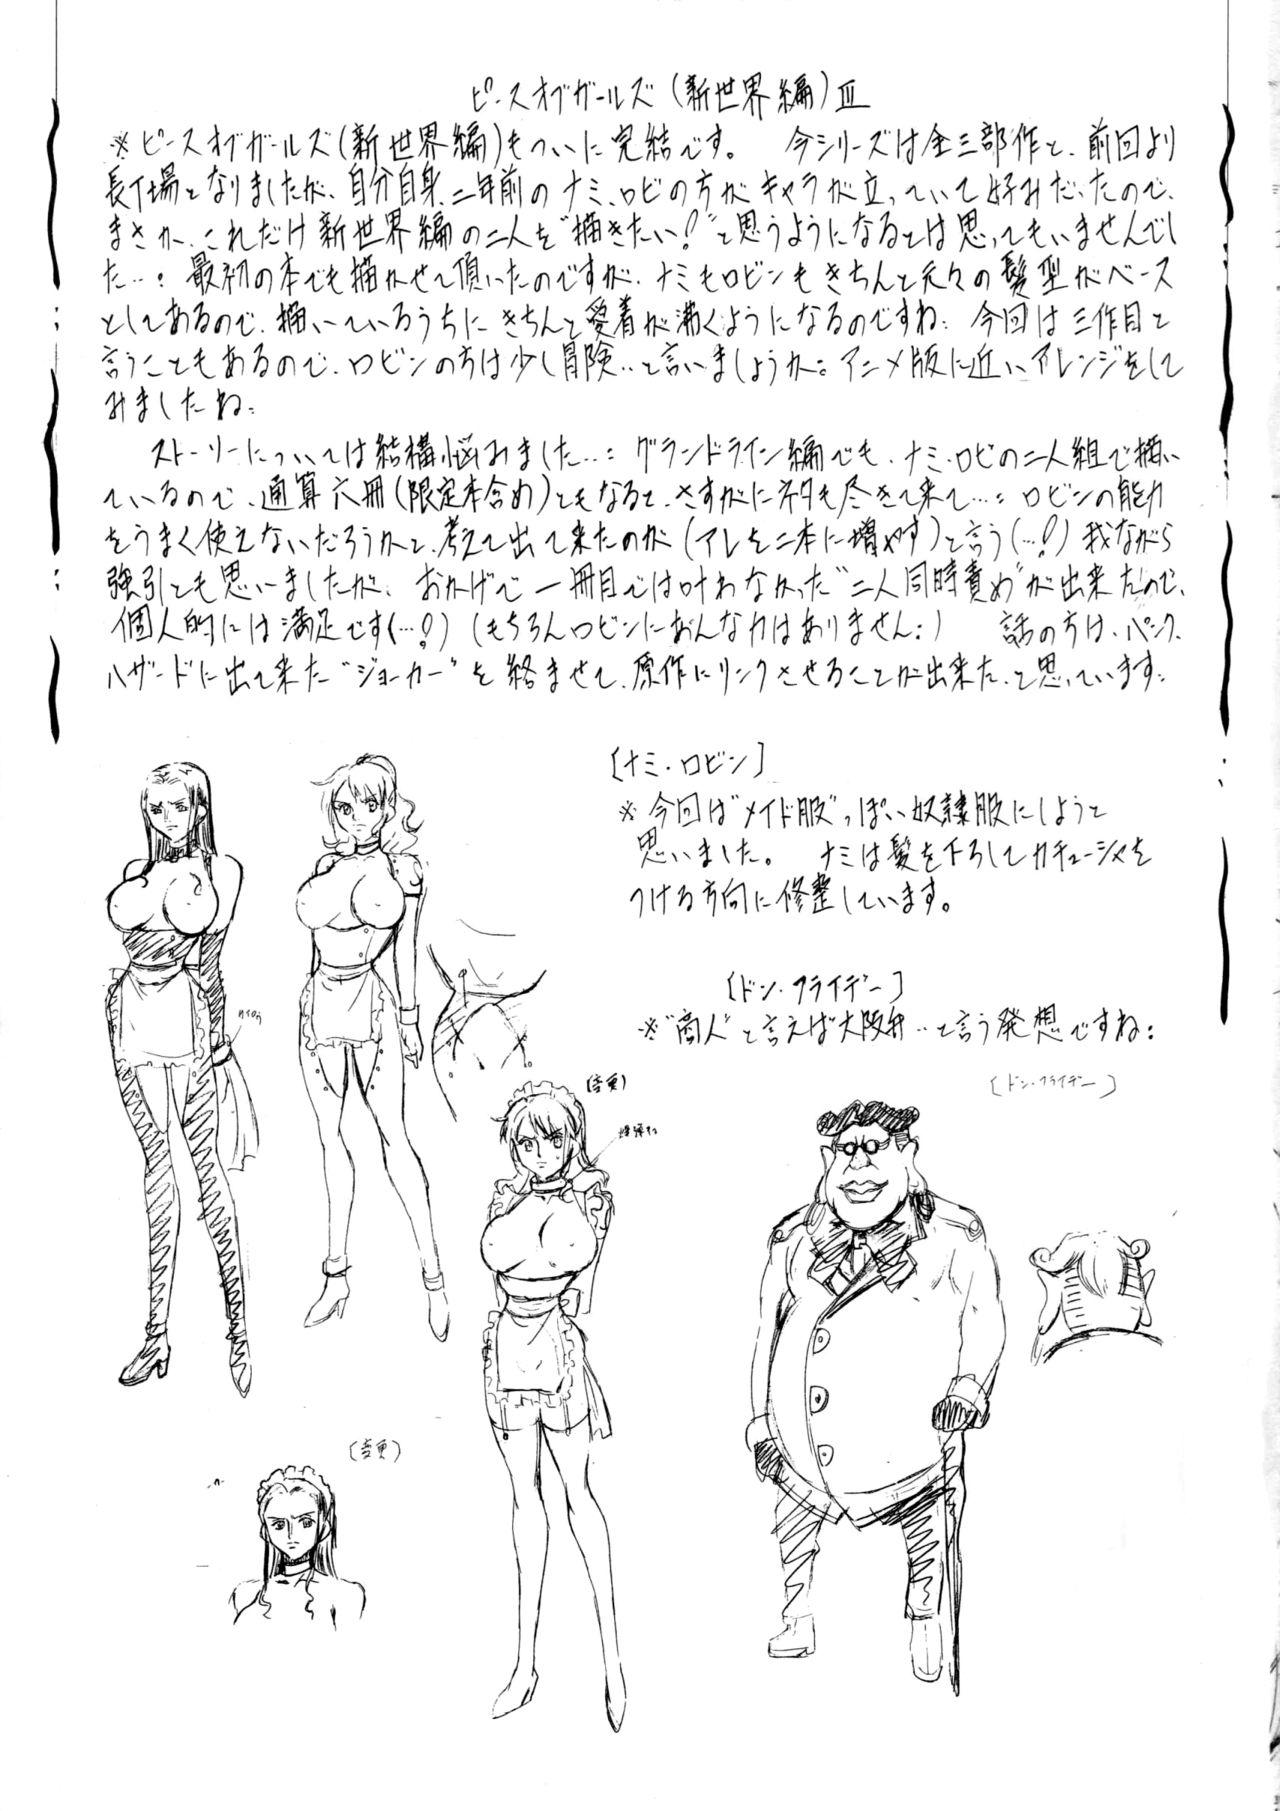 ピースオブガールズ(新世界編)Ⅲ
※ピースオブガールズ(新世界編)もついに完結です。 今シリーズは全三部作と、前回より
長丁場となりましたが、自分自身、二年前のナミ、ロビの方がキャラが立っていて好みだったので、
まさか、これだけ新世界編の二人を"描きたい!"と思うようになるとは思ってもいませんでし
た…: 最初の本でも描かせて頂いたのですが、ナミもロビンもきちんと元々の髪型がベース
としてあるので、描いているうちにきちんと愛着が沸くようになるのですね: 今回は三作目と
言うこともあるので、ロビンの方は少し冒険‥と言いましょうか: アニメ版に近いアレンジをして
みましたね:
ストーリーについては結構悩みました…: グランドライン編でも、ナミ、ロビの二人組で描い
ているので、通算六冊(限定本含め)ともなると、さすがにネタも尽きて来て…: ロビンの能力
をうまく使えないだろうかと、考えて出て来たのが(アレを二本に増やす)と言う(…!?)我ながら
強引とも思いましたが、おかげで一冊目では叶わなかった"二人同時責め"が出来たので、
個人的には満足です(…!?)(もちろんロビンにあんな力はありません:) 話の方は、パンク
ハザードに出て来た"ジョーカー"を絡ませて、原作にリンクさせることが出来た、と思っています:
[ナミ・ロビン]
※今回は"メイド服"っぽい奴隷服にしようと
思いました。 ナミは髪を下ろしてカチューシャを
つける方向に修整しています。
[ドン・フライデー]
※"商人"と言えば大阪弁‥と言う発想ですね:
[ドン・フライデー]
(変更)
(変更)